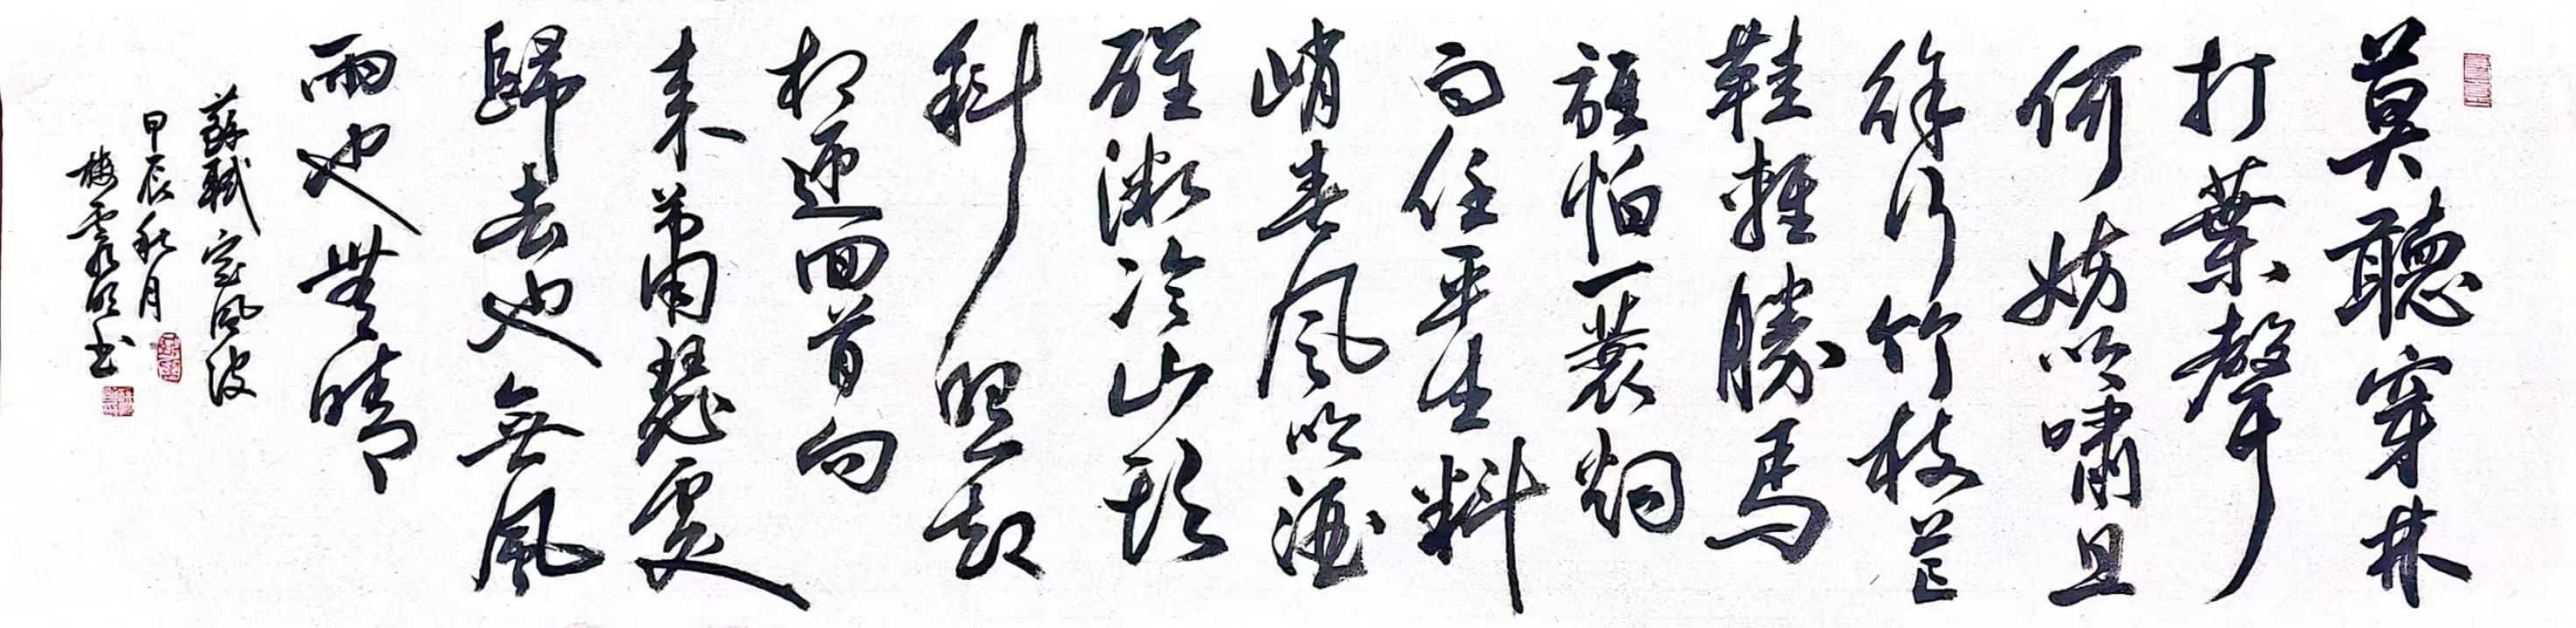 莫聽穿林
打葉聲
何妨吟嘯且
徐行竹杖芒
鞋輕勝馬
誰怕一蓑烟
雨任平生料
峭春風吹酒
醒微冷山頭
斜照却
相迎回首向
来蕭瑟處
歸去也無風
雨也無晴
蘇軾定风波
甲辰秋月
梅书